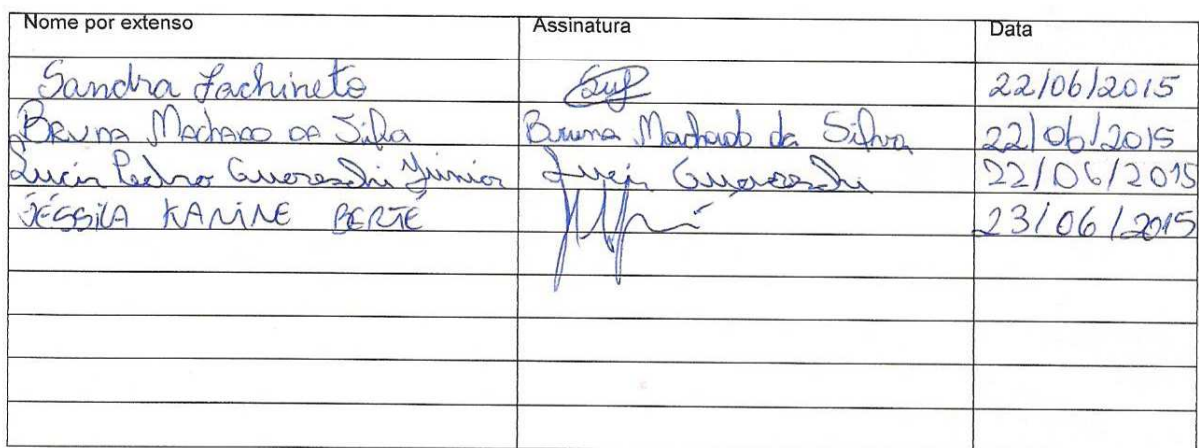 Nome por extenso Assinatura Data
Sandra Fachineto 22/06/2015
BRUNA MACHADO DA Silva Bruna Machado da Silva 22/06/2015
Lucir Pedro Guareschi Júnior Lucir Guareschi 22/06/2015
JÉSSICA KARINE BERTÉ 23/06/2015